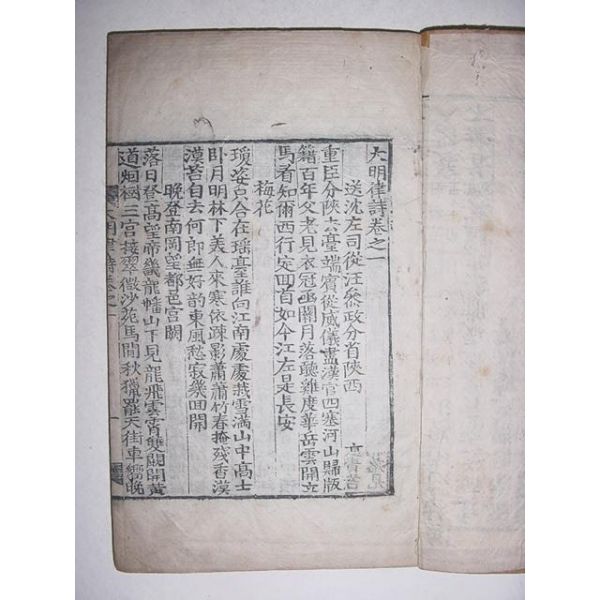 大明律詩卷之一
送沈左司從汪叅政分省陝西
重臣分陝去臺端賓從威儀盡漢官四塞河山歸版
籍百年父老見衣冠凾關月落聽雞度華岳雲開立
馬看知爾西行定回首如今江左是長安
梅花
瓊姿只合在瑶臺誰向江南處處栽雪滿山中高士
卧月明林下美人來寒依疎影蕭蕭竹春掩殘香漠
漠苔自去何郎無好韵東風愁寂幾回開
晚登南岡望都邑宮闕
落日登高望帝畿龍蟠山下見龍飛雲霄雙闕開黄
道烟三宮接翠微沙苑馬閒秋獵罷天街車響晚
大明律詩卷之一